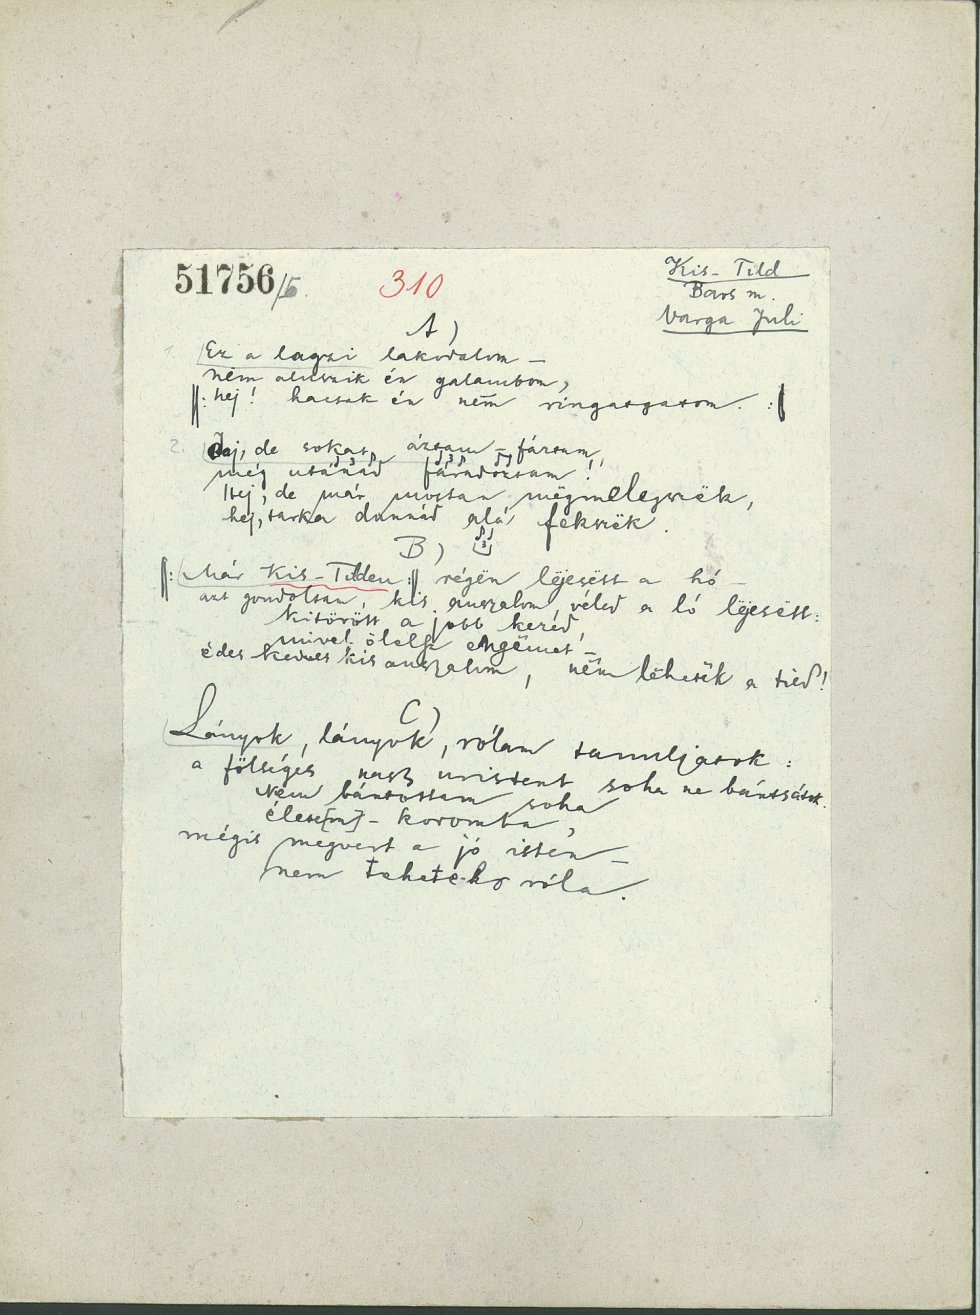 51756/5.
310
Kis-Tild
Bars m.
Varga Juli
A)
1. Ez a lagzi lakodalom –
nem aluszik én galambom,
‖: hej! hacsak én nem ringatgatom. :‖
2. Jaj, de sokat áztam-fáztam,
még utánad fáradoztam!
Hej, de már mostan mëgmelegszëk,
hej, tarka dunnád alá fekszëk.
B)
‖: Már Kis-Tilden :‖ régën lëjesëtt a hó –
azt gondoltam, kis angyalom, véled a ló lëjesëtt:
kitörött a jobb kezed,
mivel ölelsz engëmet –
édes kedves kis angyalom, nëm lëhetëk a tiéd!
C)
Lányok, lányok, rólam tanuljatok:
a fölséges nagy uristent soha ne bántsátok.
Nem bántottam soha
élete[m]-koromba,
mégis megvert a jó isten –
nem tehetek róla.